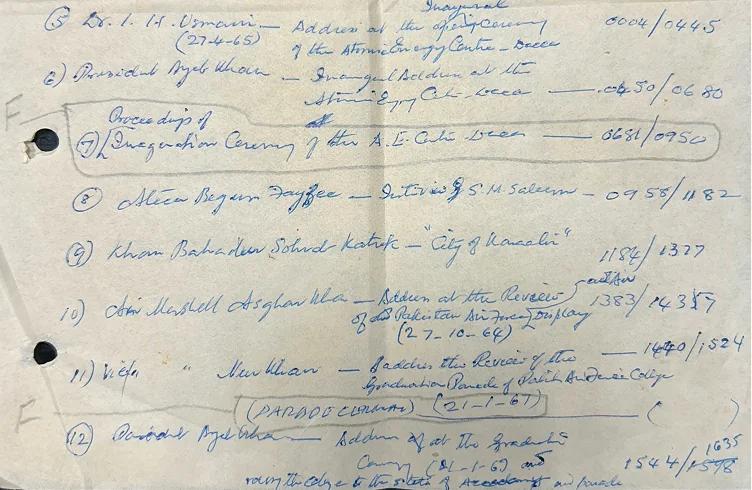 Inaugural
(5) Dr. I. H. Usmani — Address at the opening ceremony 0004/0445
(27-4-65) of the Atomic Energy Centre - Dacca
6) President Ayub Khan — Inaugural Address at the
Atomic Energy Centre Dacca —— 0450/0680
F
Proceedings of
(7) Inauguration Ceremony of the A.E. Centre Dacca —— 0681/0950
(8) Ateea Begum Fayzee — Interview of S. M. Saleem — 0958/1182
(9) Khan Bahadur Sohrab Katrak — "City of Karachi" 1184/1327
10) Air Marshall Asghar Khan — Address at the Review and Air 1383/14357
of the Pakistan Air Force Display
(27-10-64)
11) " Nur Khan — Address the Review of the —— 1440/1524
Graduation Parade of Air Force College
F
(21-1-67) ( )
(12) President Ayub Khan — Address at the Graduation
1635
Ceremony (21-1-67) and 1544/1598
raising the college to the status of Academy and parade